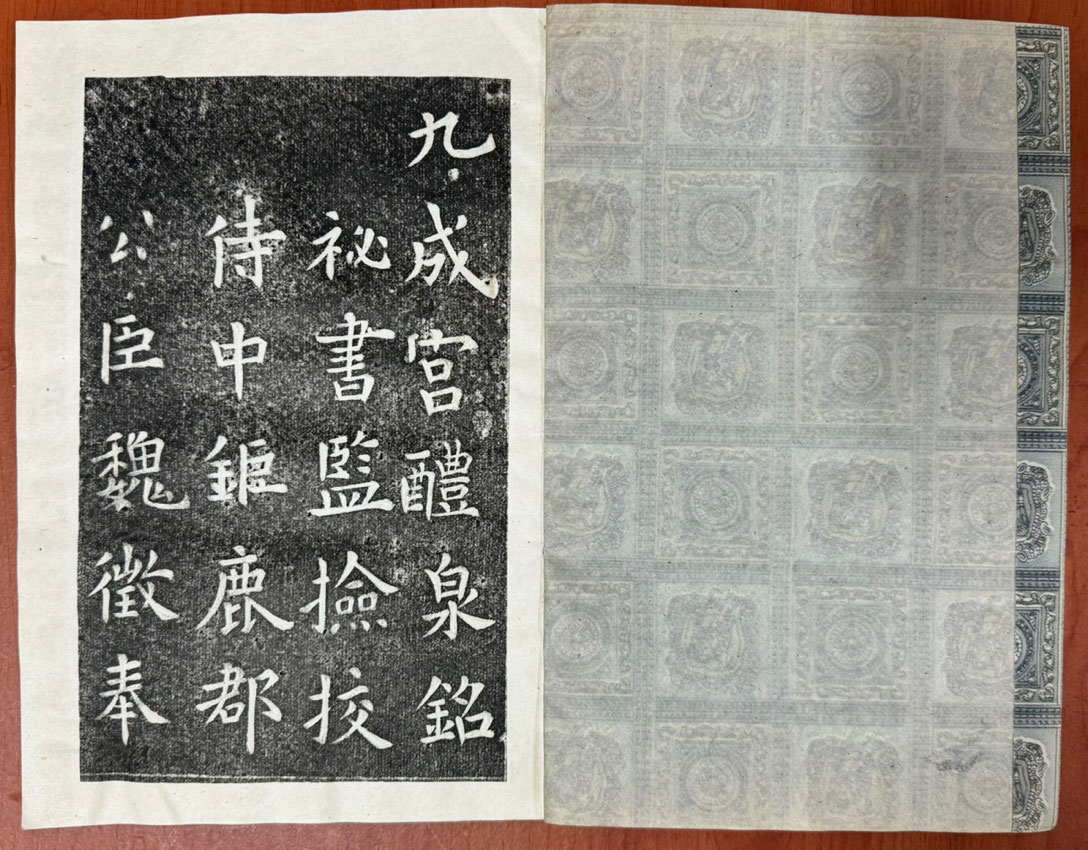 九成宮醴泉銘
祕書監撿挍
侍中鉅鹿郡
公臣魏徵奉